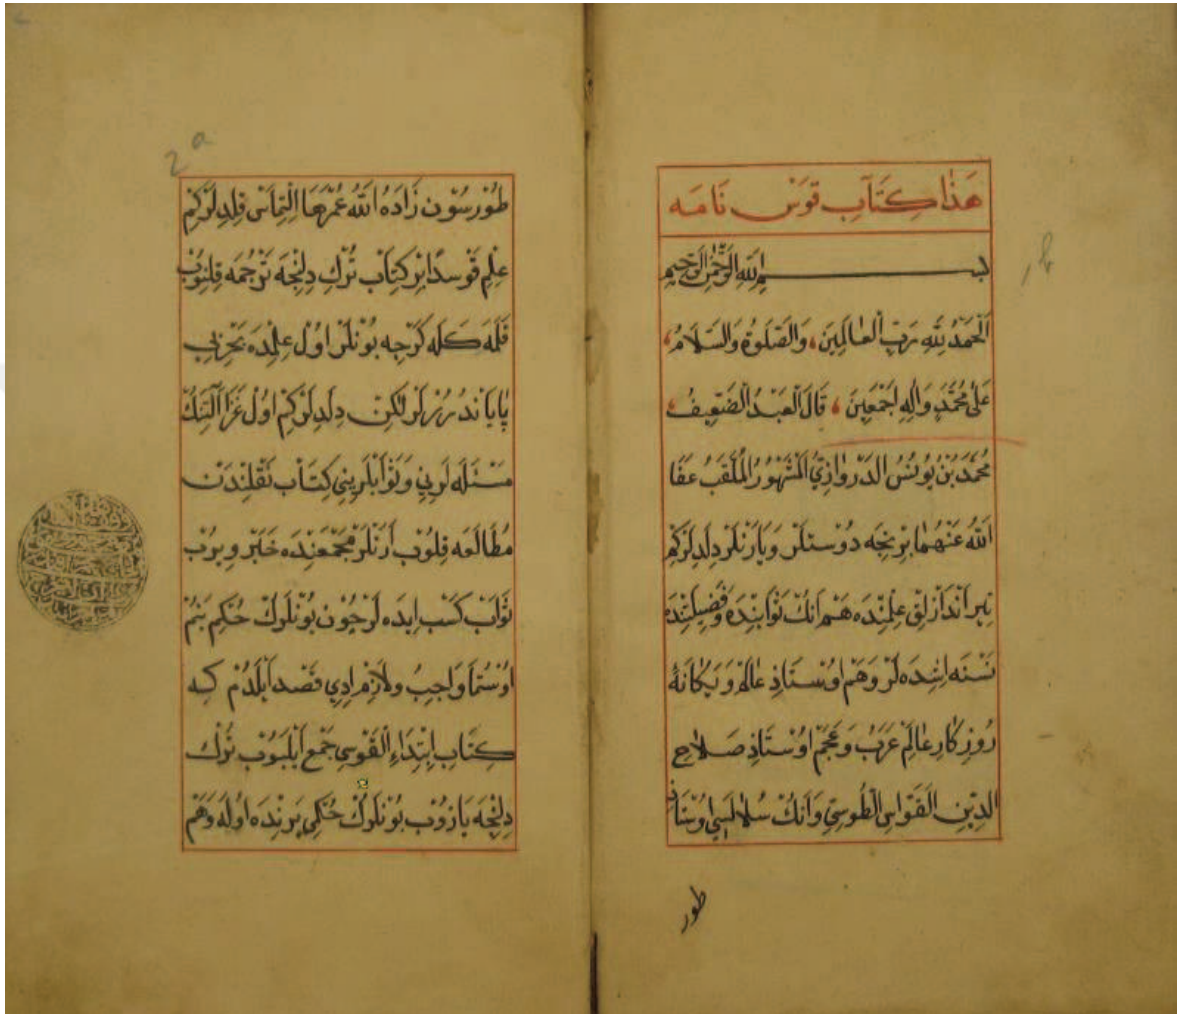 هَذَا كِتَابِ قَوْسْ نَامَه
بِسْمِ اللّٰهِ الرَّحْمٰنِ الرَّحِيمِ
اَلْحَمْدُ لِلّٰهِ رَبِّ الْعَالَمِينَ، وَالصَّلٰوةُ وَالسَّلَامُ،
عَلٰى مُحَمَّدٍ وَاٰلِهِ اَجْمَعِينَ، قَالَ الْعَبْدُ الضَّعِيفُ،
مُحَمَّدَ بْنِ يُونُسْ الدَّرْوَازِيِّ الْمَشْهُورُ الْمُلَقَّبُ عَفَا
اللّٰهُ عَنْهُمَا بِرْ نِجَه دُوسْتلَرْ وَيَارَنْلَرْ دِلَدِلَرْكِمْ
تِيرْ اَنْدَازْلِقْ عِلْمِنْدَه هَمْ اَنُكْ ثَوَابِنْدَه وَفَضِيلَتِنْدَه
نَسْنَه اِشِدَه لَرْ وَهَمْ اوُسْتَاذِ عَالَمْ وَيَكَانَهٔ
رُوزِكَارِ عَالِمْ عَرَبْ وَعَجَمْ اوُسْتَاذِ صَلَاحِ
الدِّينِ الْقَوَّاسِ الطُّوسِيِّ وَانُكْ سُلَالَسِي اوُسْتَاذِ
طور
2a
طُورْسُونْ زَادَهُ اللّٰهُ عُمْرَهَا اِلْتِمَاسْ قِلدِلَرْكِمْ
عِلْمِ قَوْسدَا بِرْ كِتَابْ تُرْكِ دِلِنْجَه تَرْجُمَه قِلِنُوبْ
قَلَمَه كَلَه كَرْجِه بُونْلَرْ اوُلْ عِلمْدَه بَحْرِ بِي
پَايَانْدُرُرْلَرْ لٰكِنْ دِلَدِلَرْكِمْ اوُلْ غَزَا اٰلَتِنُكْ
مَسْئَلَه لَرِينِ وَثَوَابْلَرِينِي كِتَابْ نَقْلِنْدَنْ
مُطَالَعَه قِلُوبْ اَرَنْلَرْ مَجْمَعِنْدَه خَبَرْ وِيرُبْ
ثَوَابْ كَسْب اِيدَه لَرْ جُونْ بُونْلَرُكْ حُكْمِ بَنُمْ
اوُسْتُمَا وَاجِبُ وَلَازِمْ اِدِي قَصْد اَيْلَدُمْ كِه
كِتَابِ اِبْتِدَاءِ الْقَوْسِي جَمْع اَيْلَيُوبْ تُرْك
دِلِنْجَه يَازُوبْ بُونْلَرُكْ حُكْمِي يَرِنْدَه اوُلَه وَهَمْ